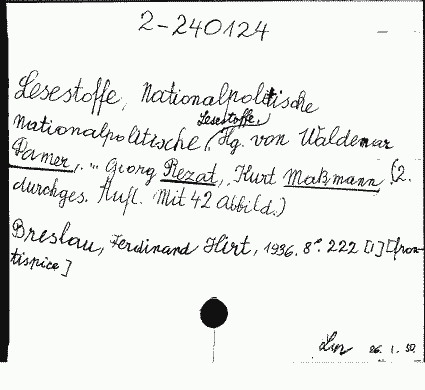 2-240124
Lesestoffe, Nationalpolitische
Lesestoffe.
Nationalpolitische (Hg. von Waldemar
Damer, .. Georg Rezat, Kurt Maßmann. (2.
durchges. Aufl. Mit 42 Abbild.)
Breslau, Ferdinand Hirt, 1936. 8°. 222 [1] [fron-
tispice]
26. 1. 50.